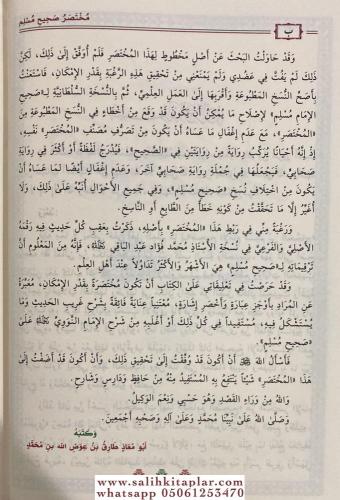 مُخْتَصَرُ صَحِيحِ مُسْلِمٍ
ب
وَقَدْ حَاوَلْتُ الْبَحْثَ عَنْ أَصْلٍ مَخْطُوطٍ لِهَذَا الْمُخْتَصَرِ فَلَمْ أُوَفَّقْ إِلَى ذَلِكَ، لَكِنَّ
ذَلِكَ لَمْ يَفُتَّ فِي عَضُدِي وَلَمْ يَمْنَعْنِي مِنْ تَحْقِيقِ هَذِهِ الرَّغْبَةِ بِقَدْرِ الْإِمْكَانِ، فَاسْتَعَنْتُ
بِأَصَحِّ النُّسَخِ الْمَطْبُوعَةِ وَأَقْرَبِهَا إِلَى الْعَمَلِ الْعِلْمِيِّ، ثُمَّ بِالنُّسْخَةِ السُّلْطَانِيَّةِ لِـ«صَحِيحِ
الْإِمَامِ مُسْلِمٍ» لِإِصْلَاحِ مَا يُمْكِنُ أَنْ يَكُونَ قَدْ وَقَعَ مِنْ أَخْطَاءٍ فِي النُّسَخِ الْمَطْبُوعَةِ مِنَ
«الْمُخْتَصَرِ»، مَعَ عَدَمِ إِغْفَالِ مَا عَسَاهُ أَنْ يَكُونَ مِنْ تَصَرُّفِ مُصَنِّفِ «الْمُخْتَصَرِ» نَفْسِهِ،
إِذْ إِنَّهُ أَحْيَانًا يُرَكِّبُ رِوَايَةً مِنْ رِوَايَتَيْنِ فِي «الصَّحِيحِ»، فَيُدْرِجُ لَفْظَةً أَوْ أَكْثَرَ فِي رِوَايَةِ
صَحَابِيٍّ، فَيَجْعَلُهَا فِي جُمْلَةِ رِوَايَةِ صَحَابِيٍّ آخَرَ، وَعَدَمِ إِغْفَالِ أَيْضًا لِمَا عَسَاهُ أَنْ
يَكُونَ مِنِ اخْتِلَافِ نُسَخِ «صَحِيحِ مُسْلِمٍ»، وَفِي جَمِيعِ الْأَحْوَالِ أُنَبِّهُ عَلَى ذَلِكَ، وَلَا
أُغَيِّرُ إِلَّا مَا تَحَقَّقْتُ مِنْ كَوْنِهِ خَطَأً مِنَ الطَّابِعِ أَوِ النَّاسِخِ.
وَرَغْبَةً مِنِّي فِي رَبْطِ هَذَا «الْمُخْتَصَرِ» بِأَصْلِهِ، ذَكَرْتُ بِعَقِبِ كُلِّ حَدِيثٍ فِيهِ رَقْمَهُ
الْأَصْلِيَّ وَالْفَرْعِيَّ فِي نُسْخَةِ الْأُسْتَاذِ مُحَمَّد فُؤَاد عَبْدِ الْبَاقِي رَحِمَهُ اللهُ، فَإِنَّهُ مِنَ الْمَعْلُومِ أَنَّ
تَرْقِيمَاتِهِ لِـ«صَحِيحِ مُسْلِمٍ» هِيَ الْأَشْهَرُ وَالْأَكْثَرُ تَدَاوُلًا عِنْدَ أَهْلِ الْعِلْمِ.
وَقَدْ حَرَصْتُ فِي تَعْلِيقَاتِي عَلَى الْكِتَابِ أَنْ تَكُونَ مُخْتَصَرَةً بِقَدْرِ الْإِمْكَانِ، مُعَبِّرَةً
عَنِ الْمُرَادِ بِأَوْجَزِ عِبَارَةٍ وَأَخْصَرِ إِشَارَةٍ، مُعْتَنِيًا عِنَايَةً فَائِقَةً بِشَرْحِ غَرِيبِ الْحَدِيثِ وَمَا
يُسْتَشْكَلُ فِيهِ، مُسْتَفِيدًا فِي كُلِّ ذَلِكَ أَوْ أَغْلَبِهِ مِنْ شَرْحِ الْإِمَامِ النَّوَوِيِّ رَحِمَهُ اللهُ عَلَى
«صَحِيحِ مُسْلِمٍ».
فَأَسْأَلُ اللهَ ﷻ أَنْ أَكُونَ قَدْ وُفِّقْتُ إِلَى تَحْقِيقِ ذَلِكَ، وَأَنْ أَكُونَ قَدْ أَضَفْتُ إِلَى
هَذَا «الْمُخْتَصَرِ» شَيْئًا يَنْتَفِعُ بِهِ الْمُسْتَفِيدُ مِنْهُ مِنْ حَافِظٍ وَدَارِسٍ وَشَارِحٍ.
وَاللهُ مِنْ وَرَاءِ الْقَصْدِ وَهُوَ حَسْبِي وَنِعْمَ الْوَكِيلُ.
وَصَلَّى اللهُ عَلَى نَبِيِّنَا مُحَمَّدٍ وَعَلَى آلِهِ وَصَحْبِهِ أَجْمَعِينَ.
وَكَتَبَهُ
أَبُو مُعَاذٍ طَارِقُ بْنُ عَوَضِ اللهِ بْنِ مُحَمَّدٍ
www.salihkitaplar.com
whatsapp 05061253470